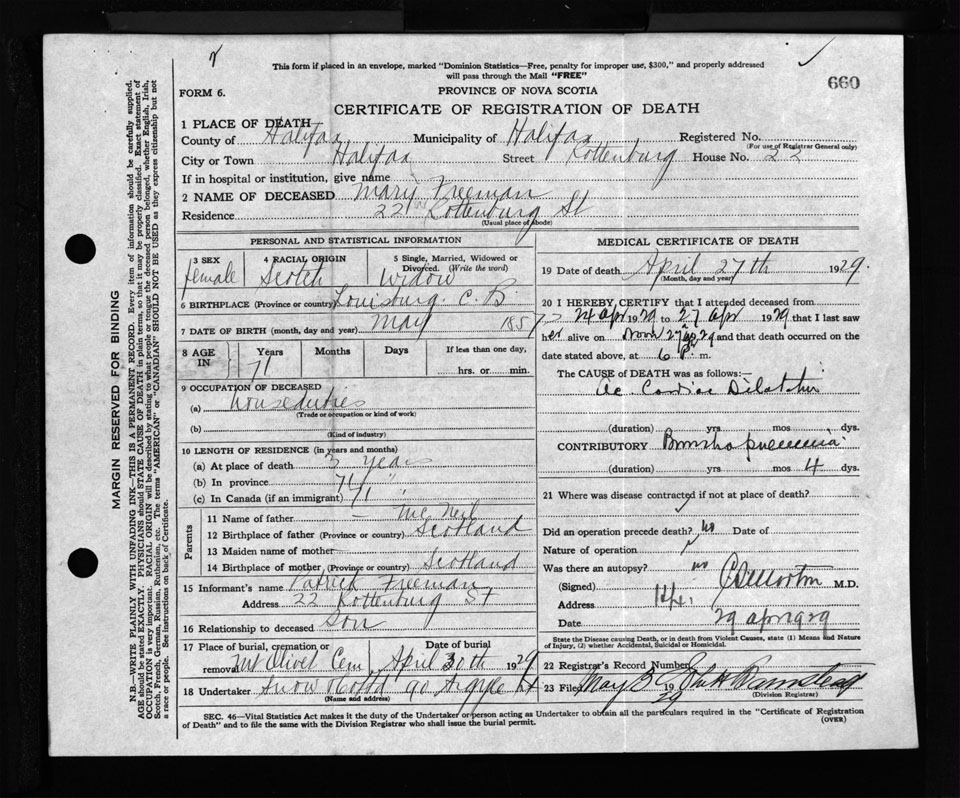 This form if placed in an envelope, marked "Dominion Statistics—Free, penalty for improper use, $300," and properly addressed
will pass through the Mail "FREE"
660
FORM 6.
PROVINCE OF NOVA SCOTIA
CERTIFICATE OF REGISTRATION OF DEATH
1 PLACE OF DEATH
County of Halifax Municipality of Halifax Registered No.
(For use of Registrar General only)
City or Town Halifax Street Kottenburg House No. 22
If in hospital or institution, give name
2 NAME OF DECEASED Mary Freeman
Residence 22 Kottenburg St
(Usual place of abode)
PERSONAL AND STATISTICAL INFORMATION
3 SEX female
4 RACIAL ORIGIN Scotch
5 Single, Married, Widowed or Divorced. (Write the word) Widow
6 BIRTHPLACE (Province or country) Louisburg. C. B.
7 DATE OF BIRTH (month, day and year) May 1857
8 AGE IN Years Months Days If less than one day,
71 hrs. or min.
9 OCCUPATION OF DECEASED
(a) housduties
(Trade or occupation or kind of work)
(b)
(Kind of industry)
10 LENGTH OF RESIDENCE (in years and months)
(a) At place of death 3 years
(b) In province 71 "
(c) In Canada (if an immigrant) 71 "
Parents
11 Name of father — McNeil
12 Birthplace of father (Province or country) Scotland
13 Maiden name of mother
14 Birthplace of mother (Province or country) Scotland
15 Informant's name Patrick Freeman
Address 22 Kottenburg St
16 Relationship to deceased Son
17 Place of burial, cremation or removal Mt Olivet Cem Date of burial April 30th 1929
18 Undertaker Snow & Co Ltd 90 Argyle St
(Name and address)
MEDICAL CERTIFICATE OF DEATH
19 Date of death April 27th 1929.
(Month, day and year)
20 I HEREBY CERTIFY that I attended deceased from
24 Apr 1929 to 27 Apr 1929 that I last saw
her alive on Noon 27 Ap 29 and that death occurred on the
date stated above, at 6 P. m.
The CAUSE of DEATH was as follows:—
Ac. Cardiac Dilatation
(duration) yrs mos dys.
CONTRIBUTORY Broncho pneumonia
(duration) yrs mos 4 dys.
21 Where was disease contracted if not at place of death?
Did an operation precede death? no Date of
Nature of operation
Was there an autopsy? no
(Signed) Morton M.D.
Address Hx.
Date 29 apr 1929
State the Disease causing Death, or in death from Violent Causes, state (1) Means and Nature
of Injury, (2) whether Accidental, Suicidal or Homicidal.
22 Registrar's Record Number
23 Filed May 3 1929
(Division Registrar)
SEC. 46—Vital Statistics Act makes it the duty of the Undertaker or person acting as Undertaker to obtain all the particulars required in the "Certificate of Registration
of Death" and to file the same with the Division Registrar who shall issue the burial permit.
(OVER)
MARGIN RESERVED FOR BINDING
N.B.—WRITE PLAINLY WITH UNFADING INK—THIS IS A PERMANENT RECORD. Every item of information should be carefully supplied.
AGE should be stated EXACTLY. PHYSICIANS should STATE CAUSE OF DEATH in plain terms, so that it may be properly classified. Exact statement of
OCCUPATION is very important. RACIAL ORIGIN will be described by stating to what people or tongue the deceased person belonged, whether English, Irish,
Scotch, French, German, Russian, Ruthenian, etc. The terms "AMERICAN" or "CANADIAN" SHOULD NOT BE USED as they express citizenship but not
a race or people. See instructions on back of Certificate.